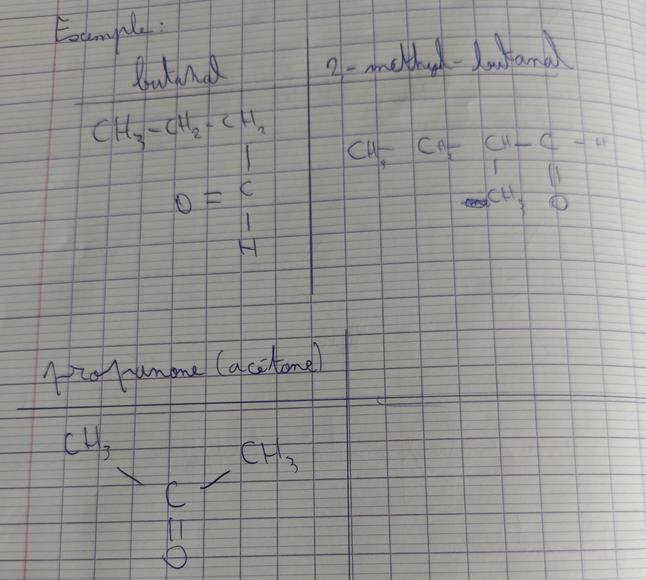 Exemple:
butanal
CH3-CH2-CH2
|
O = C
|
H
2-méthyl-butanal
CH3 CH2 CH - C - H
| ||
CH3 O
propanone (acétone)
CH3 CH3
\ /
C
||
O